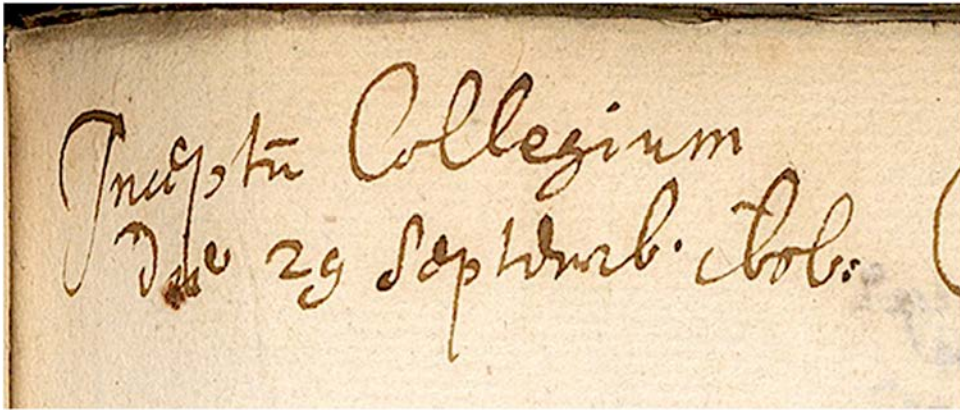 Inceptũ Collegium
Die 29 Septemb.